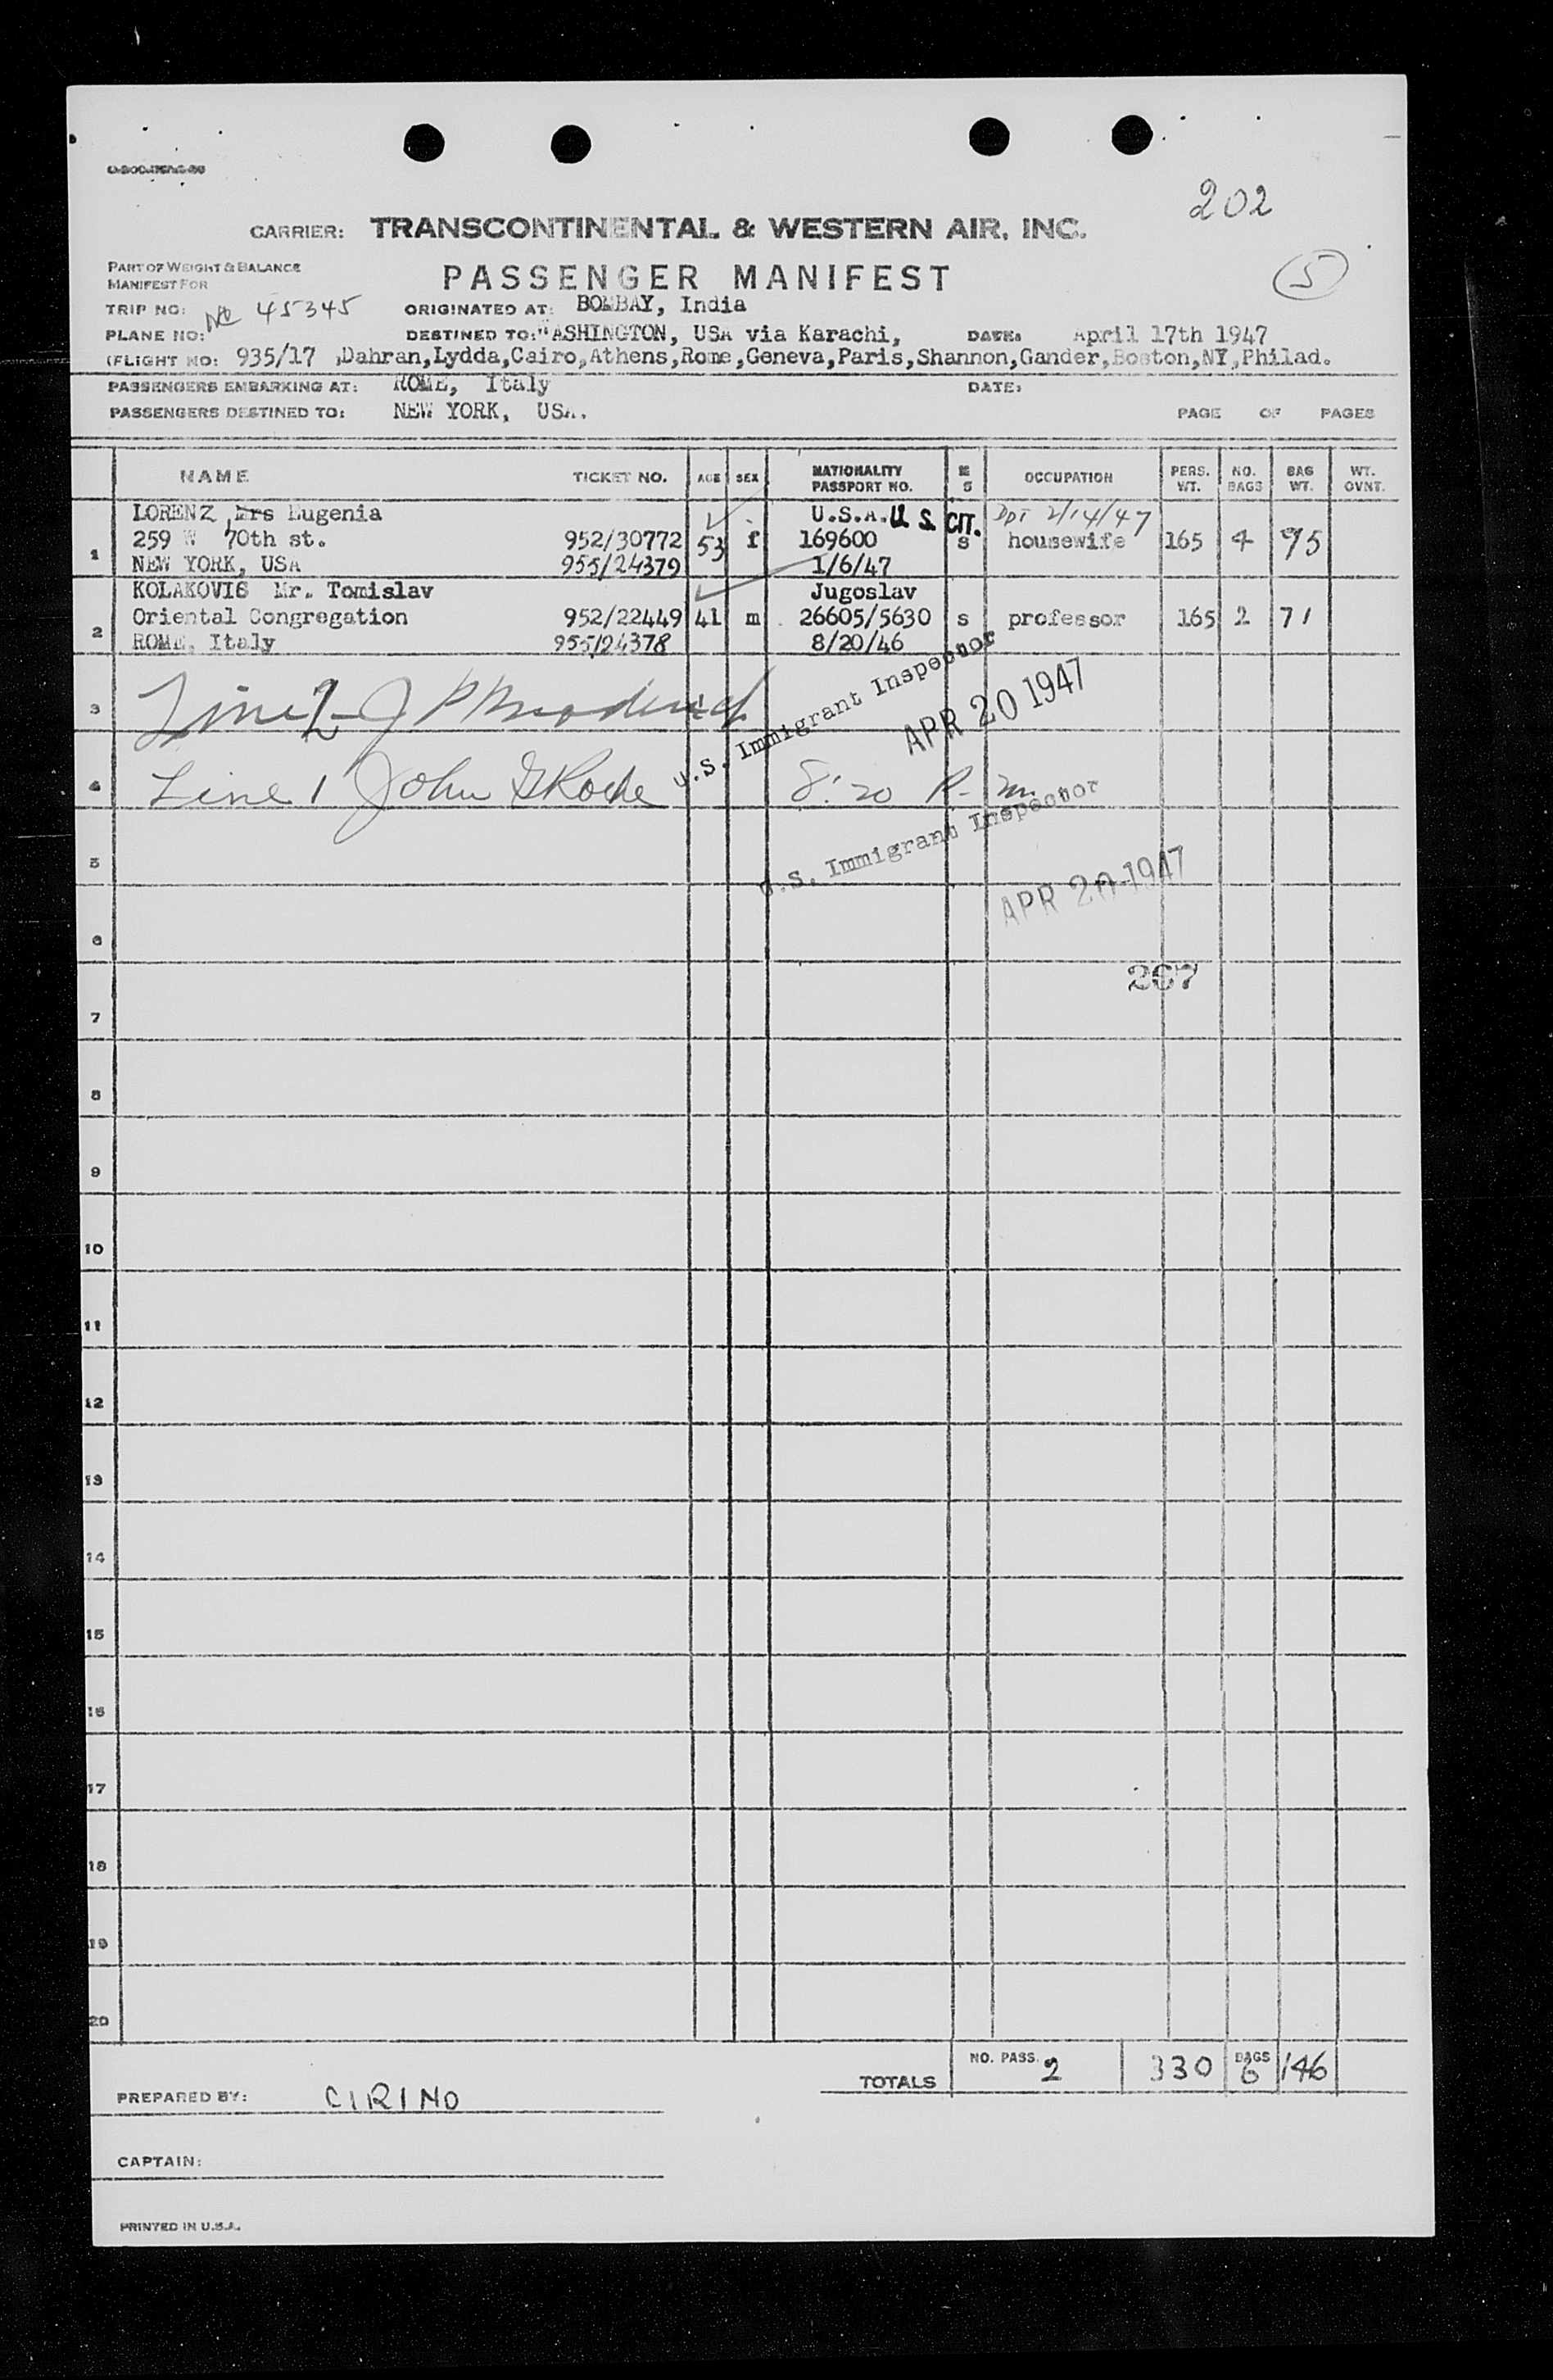 202
CARRIER: TRANSCONTINENTAL & WESTERN AIR, INC.
PART OF WEIGHT & BALANCE
MANIFEST FOR
PASSENGER MANIFEST
5
TRIP NO: 45345 ORIGINATED AT: BOMBAY, India
PLANE NO: DESTINED TO: WASHINGTON, USA via Karachi, DATE: April 17th 1947
(FLIGHT NO: 935/17 ,Dahran,Lydda,Cairo,Athens,Rome,Geneva,Paris,Shannon,Gander,Boston,NY,Philad.
PASSENGERS EMBARKING AT: ROME, Italy DATE:
PASSENGERS DESTINED TO: NEW YORK, USA. PAGE OF PAGES
NAME TICKET NO. AGE SEX NATIONALITY PASSPORT NO. M S OCCUPATION PERS. WT. NO. BAGS BAG WT. WT. OVNT.
LORENZ ,Mrs Eugenia U.S.A. U.S. CIT. 2/14/47
1 259 W 70th st. 952/30772 53 f 169600 s housewife 165 4 75
NEW YORK, USA 955/24379 1/6/47
KOLAKOVIS Mr. Tomislav Jugoslav
2 Oriental Congregation 952/22449 41 m 26605/5630 s professor 165 2 71
ROME, Italy 955/24378 8/20/46
3 Line 2 - J P
U.S. Immigrant Inspector
APR 20 1947
4 Line 1 John G Roche 8:20 P.m.
U.S. Immigrant Inspector
5
APR 20 1947
6
267
7
8
9
10
11
12
13
14
15
16
17
18
19
20
TOTALS NO. PASS. 2 330 BAGS 6 146
PREPARED BY: CIRINO
CAPTAIN:
PRINTED IN U.S.A.